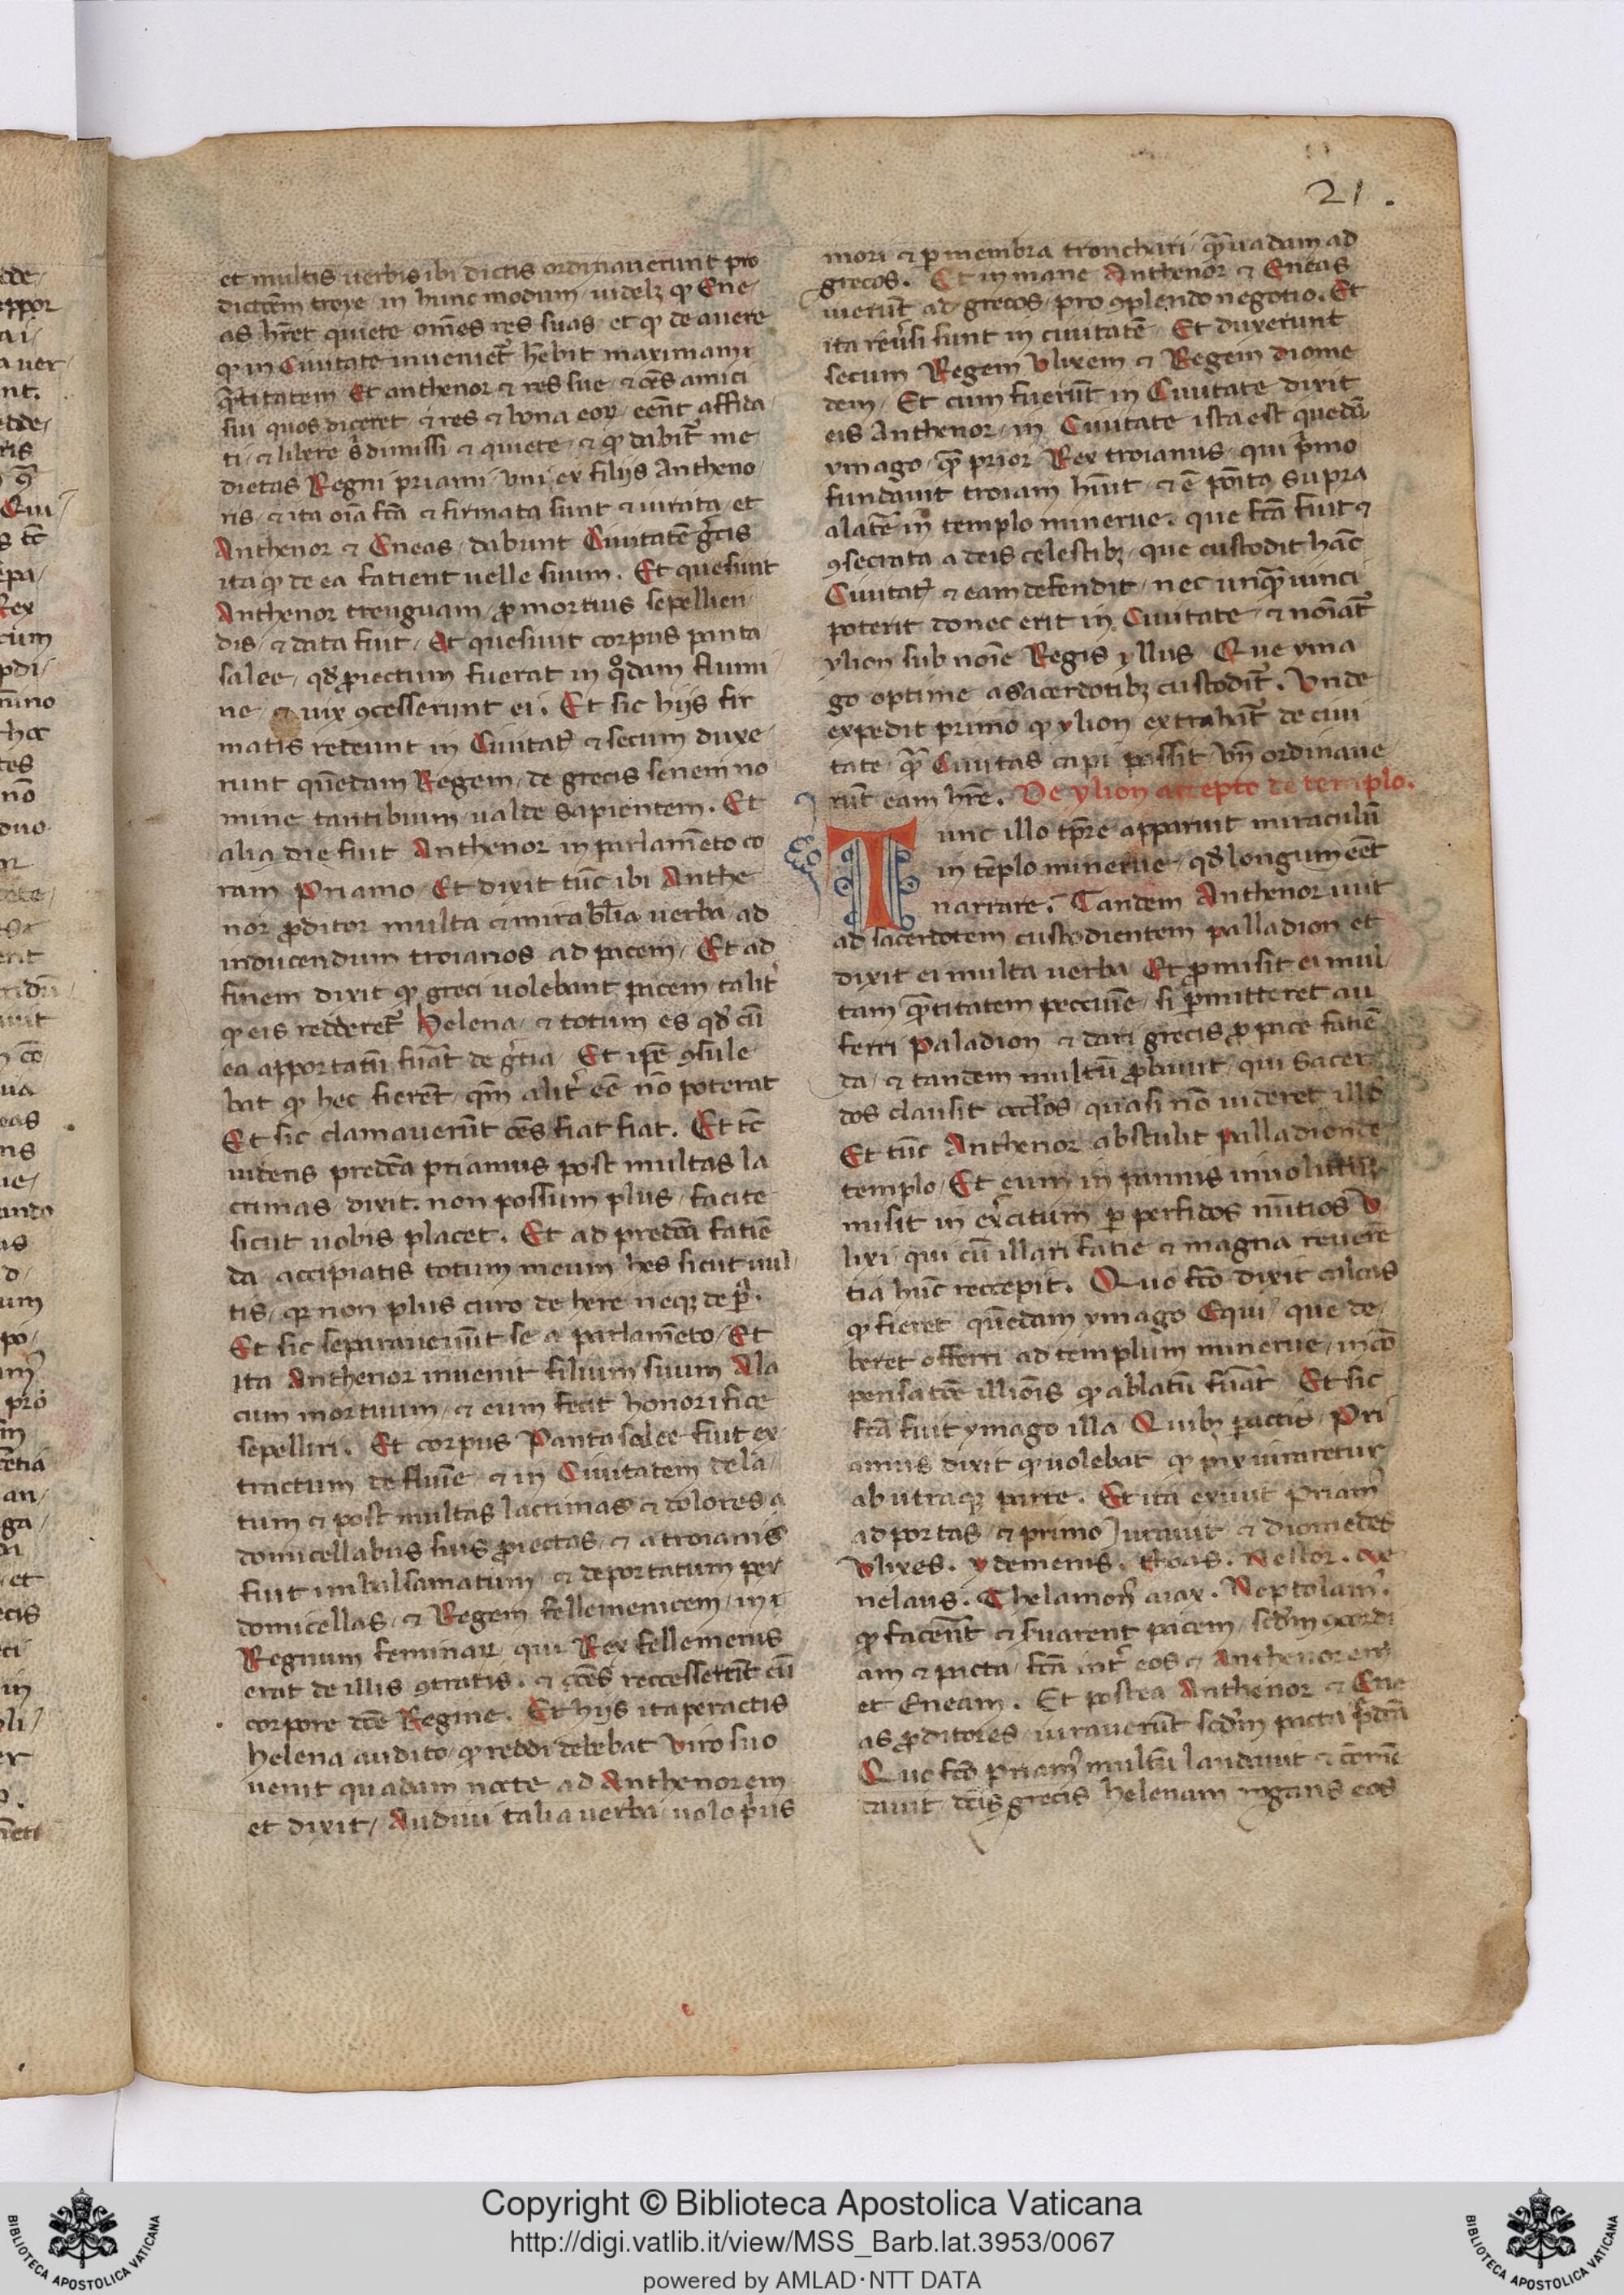 21.
et multis uerbis ibi dictis ordinauerunt pro
dictēm troye in hunc modum uidelz qͥ Ene
as hr̄et quiete om̄es res suas et qͥ de auere
qͥ in Ciuitate inuenietͬ hēbit maximam
qͣtitatem Et anthenor ⁊ res sue ⁊ oēs amici
sui quos diceret ⁊ res ⁊ bona eoꝝ eēnt affida
ti ⁊ libere dimissi ⁊ quiete ⁊ qͥ dabitͬ me
dietas Regni priami vni ex filijs Antheno
ris ⁊ ita oīa fc̄a ⁊ firmata sunt ⁊ iurata et
Anthenor ⁊ Eneas dabunt Ciuitatē gͬcis
ita qͥ de ea fatient uelle suum. Et quesiuit
Anthenor treuguam ꝓ mortuis sepellien
dis ⁊ data fuit Et quesiuit corpus panta
salee qd̄ ꝓiectum fuerat in qͦdam flumi
ne ⁊ uix ꝯcesserunt ei. Et sic hijs fir
matis redeunt in Ciuitatē ⁊ secum duxe
runt quēdam Regem de grecis senem no
mine tantibium ualde sapientem. Et
alia die fuit Anthenor in parlamēto co
ram Priamo Et dixit tūc ibi Anthe
nor ꝓditor multa ⁊ mirabl̄ia uerba ad
inducendum troianos ad pacem Et ad
finem dixit qͥ greci uolebant pacem talitͬ
qͥ eis redderetͬ Helena ⁊ totum es qd̄ cū
ea apportatū fuāt de gͬtia Et ip̄e ꝯsule
bat qͥ hec fierēt qm̄ alitͬ eē nō poterat
Et sic clamauerūt oēs fiat fiat. Et tc̄
uidens predc̄a priamus post multas la
crimas dixit. non possum plus facite
sicut uobis placet. Et ad predc̄a fatiē
da accipiatis totum meum hes sicut uul
tis qꝛ non plus curo de here neqꝫ de p̄.
Et sic separauerunt se a parlamēto Et
ita Anthenor inuenit filium suum Ala
cum mortuum ⁊ eum fecit honorifice
sepelliri. Et corpus Pantasalee fuit ex
tractum de fluīe ⁊ in Ciuitatem dela
tum ⁊ post multas lacrimas ⁊ dolores a
domicellabus suis ꝓiectas ⁊ a troianis
fuit imbalsamatum ⁊ deportatum per
domicellas ⁊ Regem fellemenicem in
Regnum feminaꝝ qui Rex fellemenis
erat de illis ꝯtratis. ⁊ oēs reccesserūt cū
corpore dc̄e Regine. Et hijs ita peractis
helena audito qͥ reddi debebat viro suo
uenit quadam nocte ad Anthenorem
et dixit Audiui talia uerba uolo pͥus
mori ⁊ ꝑ membra tronchari qͣ uadam ad
grecos. Et in mane Anthenor ⁊ Eneas
iuerūt ad grecos pro ꝯplendo negotio. Et
ita reuͬsi sunt in ciuitatē Et duxerunt
secum Regem Vlixem ⁊ Regem diome
dem Et cum fuerūt in Ciuitate dixit
eis Anthenor in Ciuitate ista est quedā
ymago qͣ prior Rex troianus qui pͥmo
fundauit troiam hūit ⁊ ē poita supra
alatē in templo minerue. que fc̄a fuit ⁊
ꝯsecrata a deis celestibꝫ que custodit hāc
Ciuitatē ⁊ eam defendit nec unqͣ uinci
poterit donec erit in Ciuitate ⁊ noīatͬ
ylion sub noīe Regis yllus Que yma
go optime a sacerdotibꝫ custoditͬ. Vnde
expedit primo qͥ ylion extrahatͬ de ciui
tate qͣ Ciuitas capi possit vn̄ ordinaue
rūt eam hr̄e. De ylion accepto de templo.
Tunc illo tp̄re apparuit miraculū
in tēplo minerue qd̄ longum eēt
narrare. Tandem Anthenor iuit
ad sacerdotem custodientem palladion et
dixit ei multa uerba Et ꝓmisit ei mul
tam qͣtitatem peccunie si ꝑmitteret au
ferri Paladion ⁊ dari grecis ꝓ pace fatiē
da ⁊ tandem multū ꝓbauit qui sacer
dos clausit occl̄os quasi nō uideret illd̄
Et tūc Anthenor abstulit palladion de
templo Et eum in pannis inuolutum
misit in exͬcitum ꝑ perfidos nūtios V
lixi qui cū illari fatie ⁊ magna reuerē
tia hūc reccepit. Quo fc̄o dixit calcas
qͥ fieret quēdam ymago Equi que de
beret offerri ad templum minerue in cō
pensatōe illionis qͥ ablatū fuāt Et sic
fc̄a fuit ymago illa Quibꝫ pactis Pri
amus dixit qͥ uolebat qͥ pax iuraretur
ab utraqꝫ parte. Et ita exiuit Priamꝰ
ad portas ⁊ primo Jurauit ⁊ diomedes
Vlixes. ydemenis. Thoas. Nestor. Me
nelaus. Thelamonͬ aiax. Neptolamꝰ.
qͥ facerēt ⁊ suarent pacem scd̄m ꝯcordi
am ⁊ pacta fc̄a intͬ eos ⁊ Anthenorem
et Eneam. Et postea Anthenor ⁊ Ene
as ꝓditores iurauerūt scd̄m pacta p̄dc̄a
Quo fc̄o priamꝰ multū laudauit ⁊ cōmē
dauit dc̄is grecis helenam rogans eos
Copyright © Biblioteca Apostolica Vaticana
http://digi.vatlib.it/view/MSS_Barb.lat.3953/0067
powered by AMLAD·NTT DATA
BIBLIOTECA APOSTOLICA VATICANA
BIBLIOTECA APOSTOLICA VATICANA